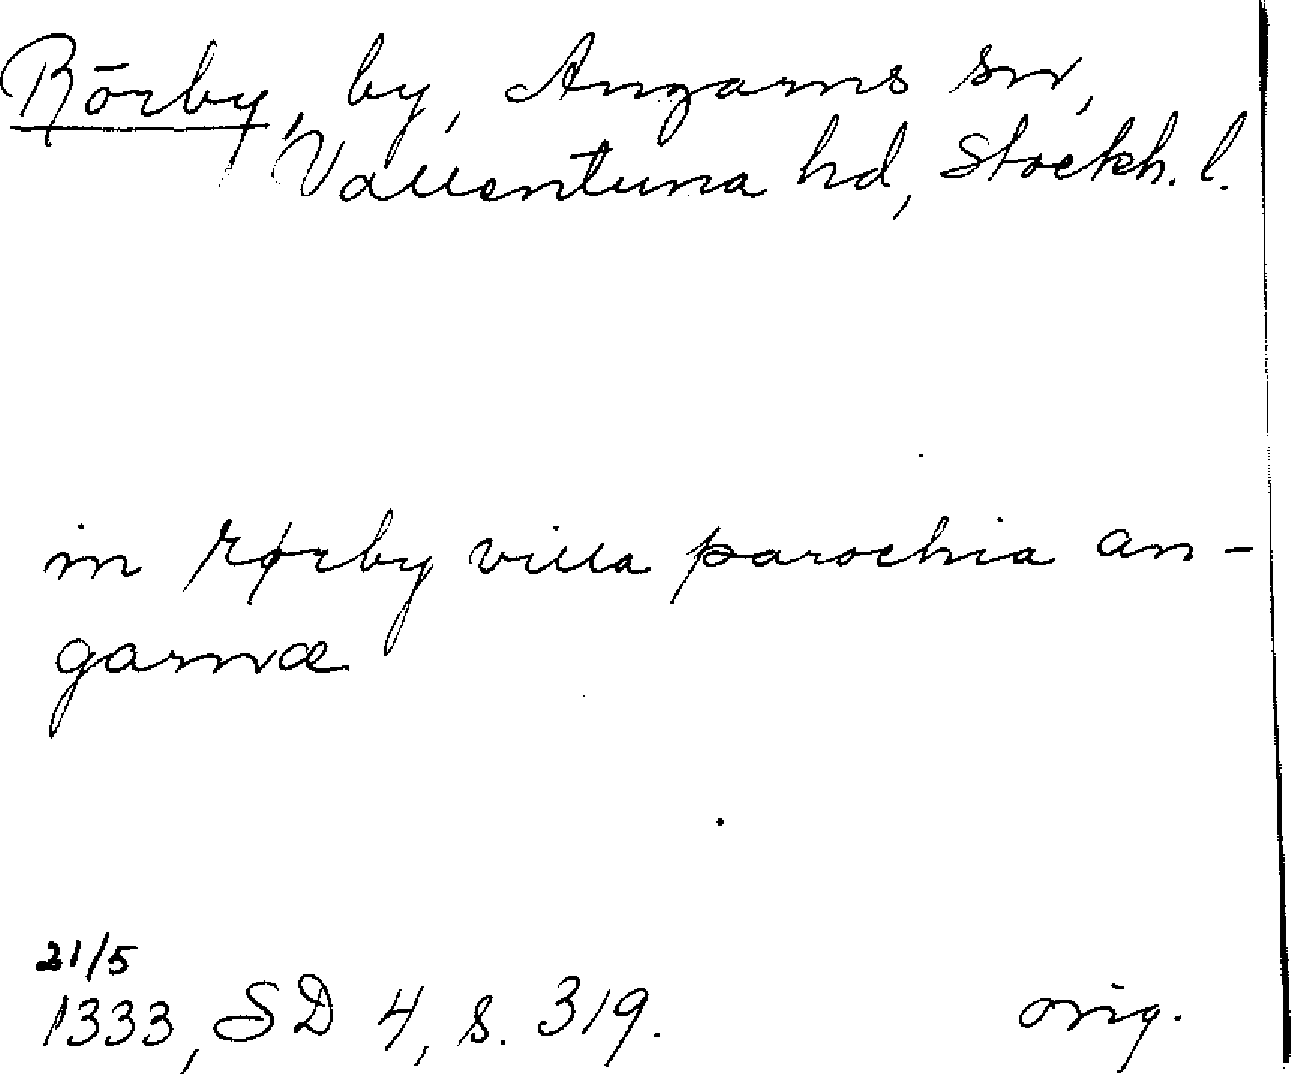 Rörby, by, Angarns sn,
Vallentuna hd, Stockh. l.
in rørby villa parochia an-
garnæ
21/5
1333, SD 4, s. 319. orig.